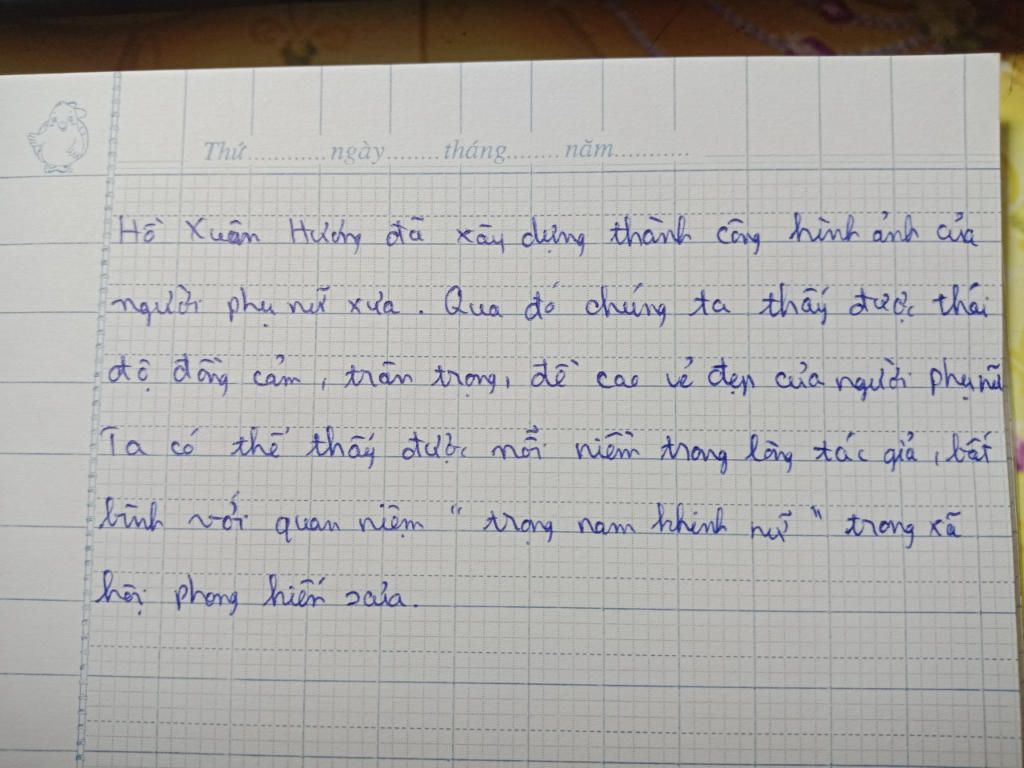 Thứ............ngày........tháng........năm............
Hồ Xuân Hương đã xây dựng thành công hình ảnh của
người phụ nữ xưa. Qua đó chúng ta thấy được thái
độ đồng cảm, trân trọng, đề cao vẻ đẹp của người phụ nữ
Ta có thể thấy được nỗi niềm trong lòng tác giả, bất
bình với quan niệm " trọng nam khinh nữ " trong xã
hội phong kiến xưa.